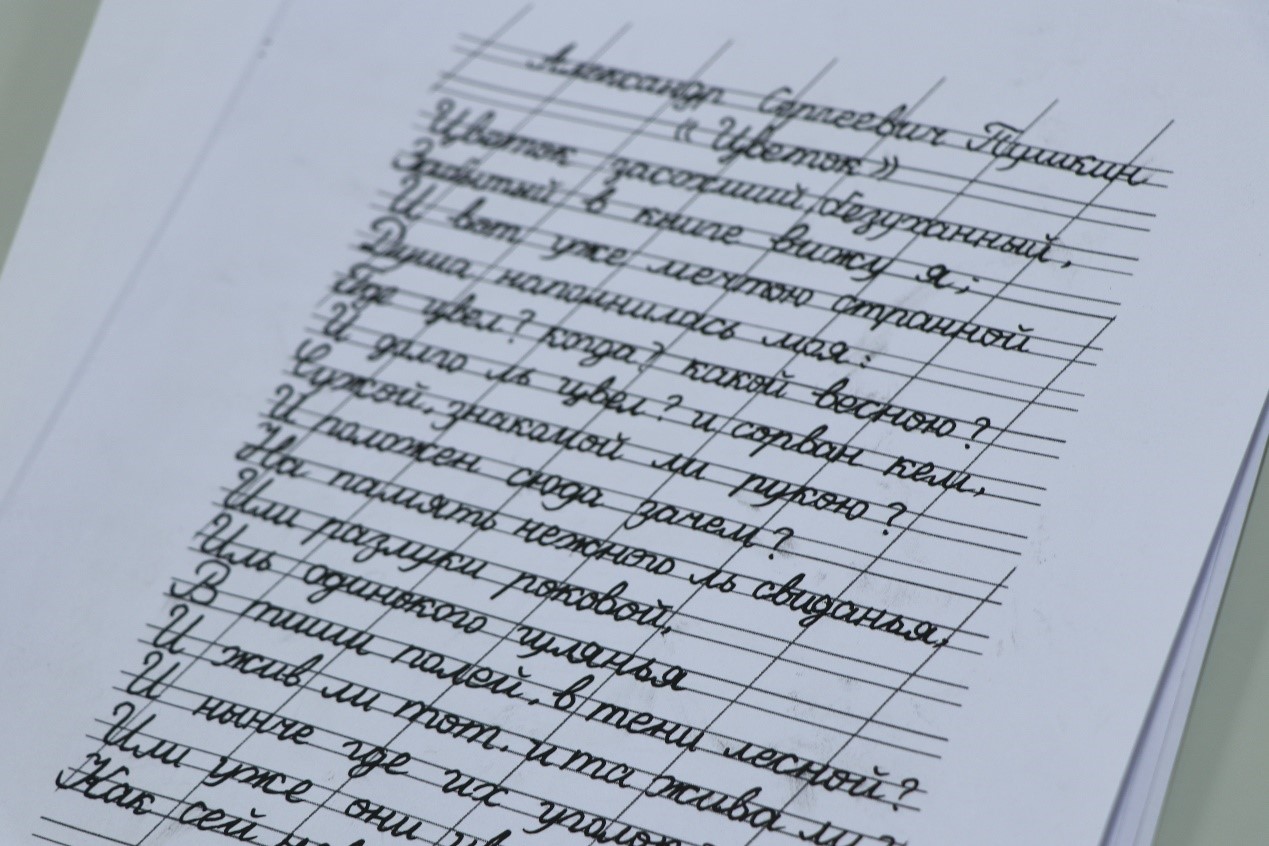 Александр Сергеевич Пушкин
« Цветок »
Цветок засохший, безуханный,
Забытый в книге вижу я;
И вот уже мечтою странной
Душа наполнилась моя:
Где цвел? когда? какой весною?
И долго ль цвел? и сорван кем,
Чужой, знакомой ли рукою?
И положен сюда зачем?
На память нежного ль свиданья,
Или разлуки роковой,
Иль одинокого гулянья
В тиши полей, в тени лесной?
И жив ли тот, и та жива ли?
И нынче где их уголок
Или уже они
Как сей